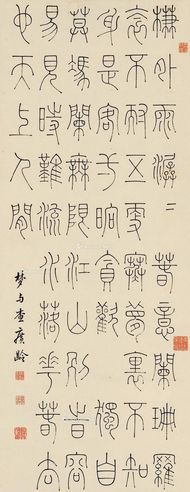 簾外雨潺〻春意闌珊羅
衾不耐五更寒夢裏不知
身是客一晌貪歡獨自
莫馮闌無限江山別時容
易見時難流水落花春去
也天上人間
梦与查